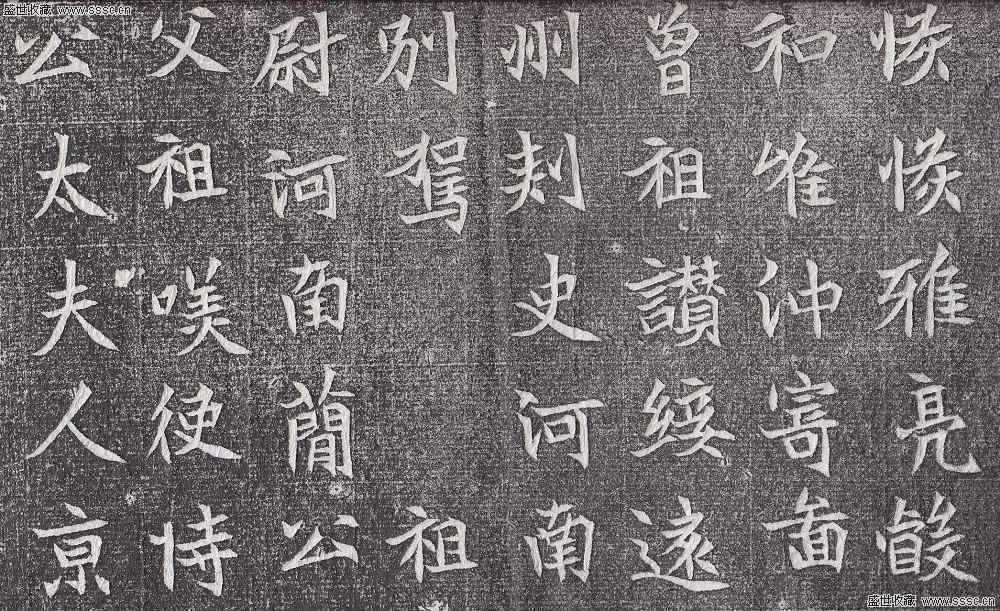 盛世收藏 www.sssc.cn
恢恢雅亮
和唯沖寄啚
曾祖讃綏遠
州刾史河南
別駕 祖
尉河南簡公
父祖咲使持
公太夫人京
盛世收藏 www.sssc.cn